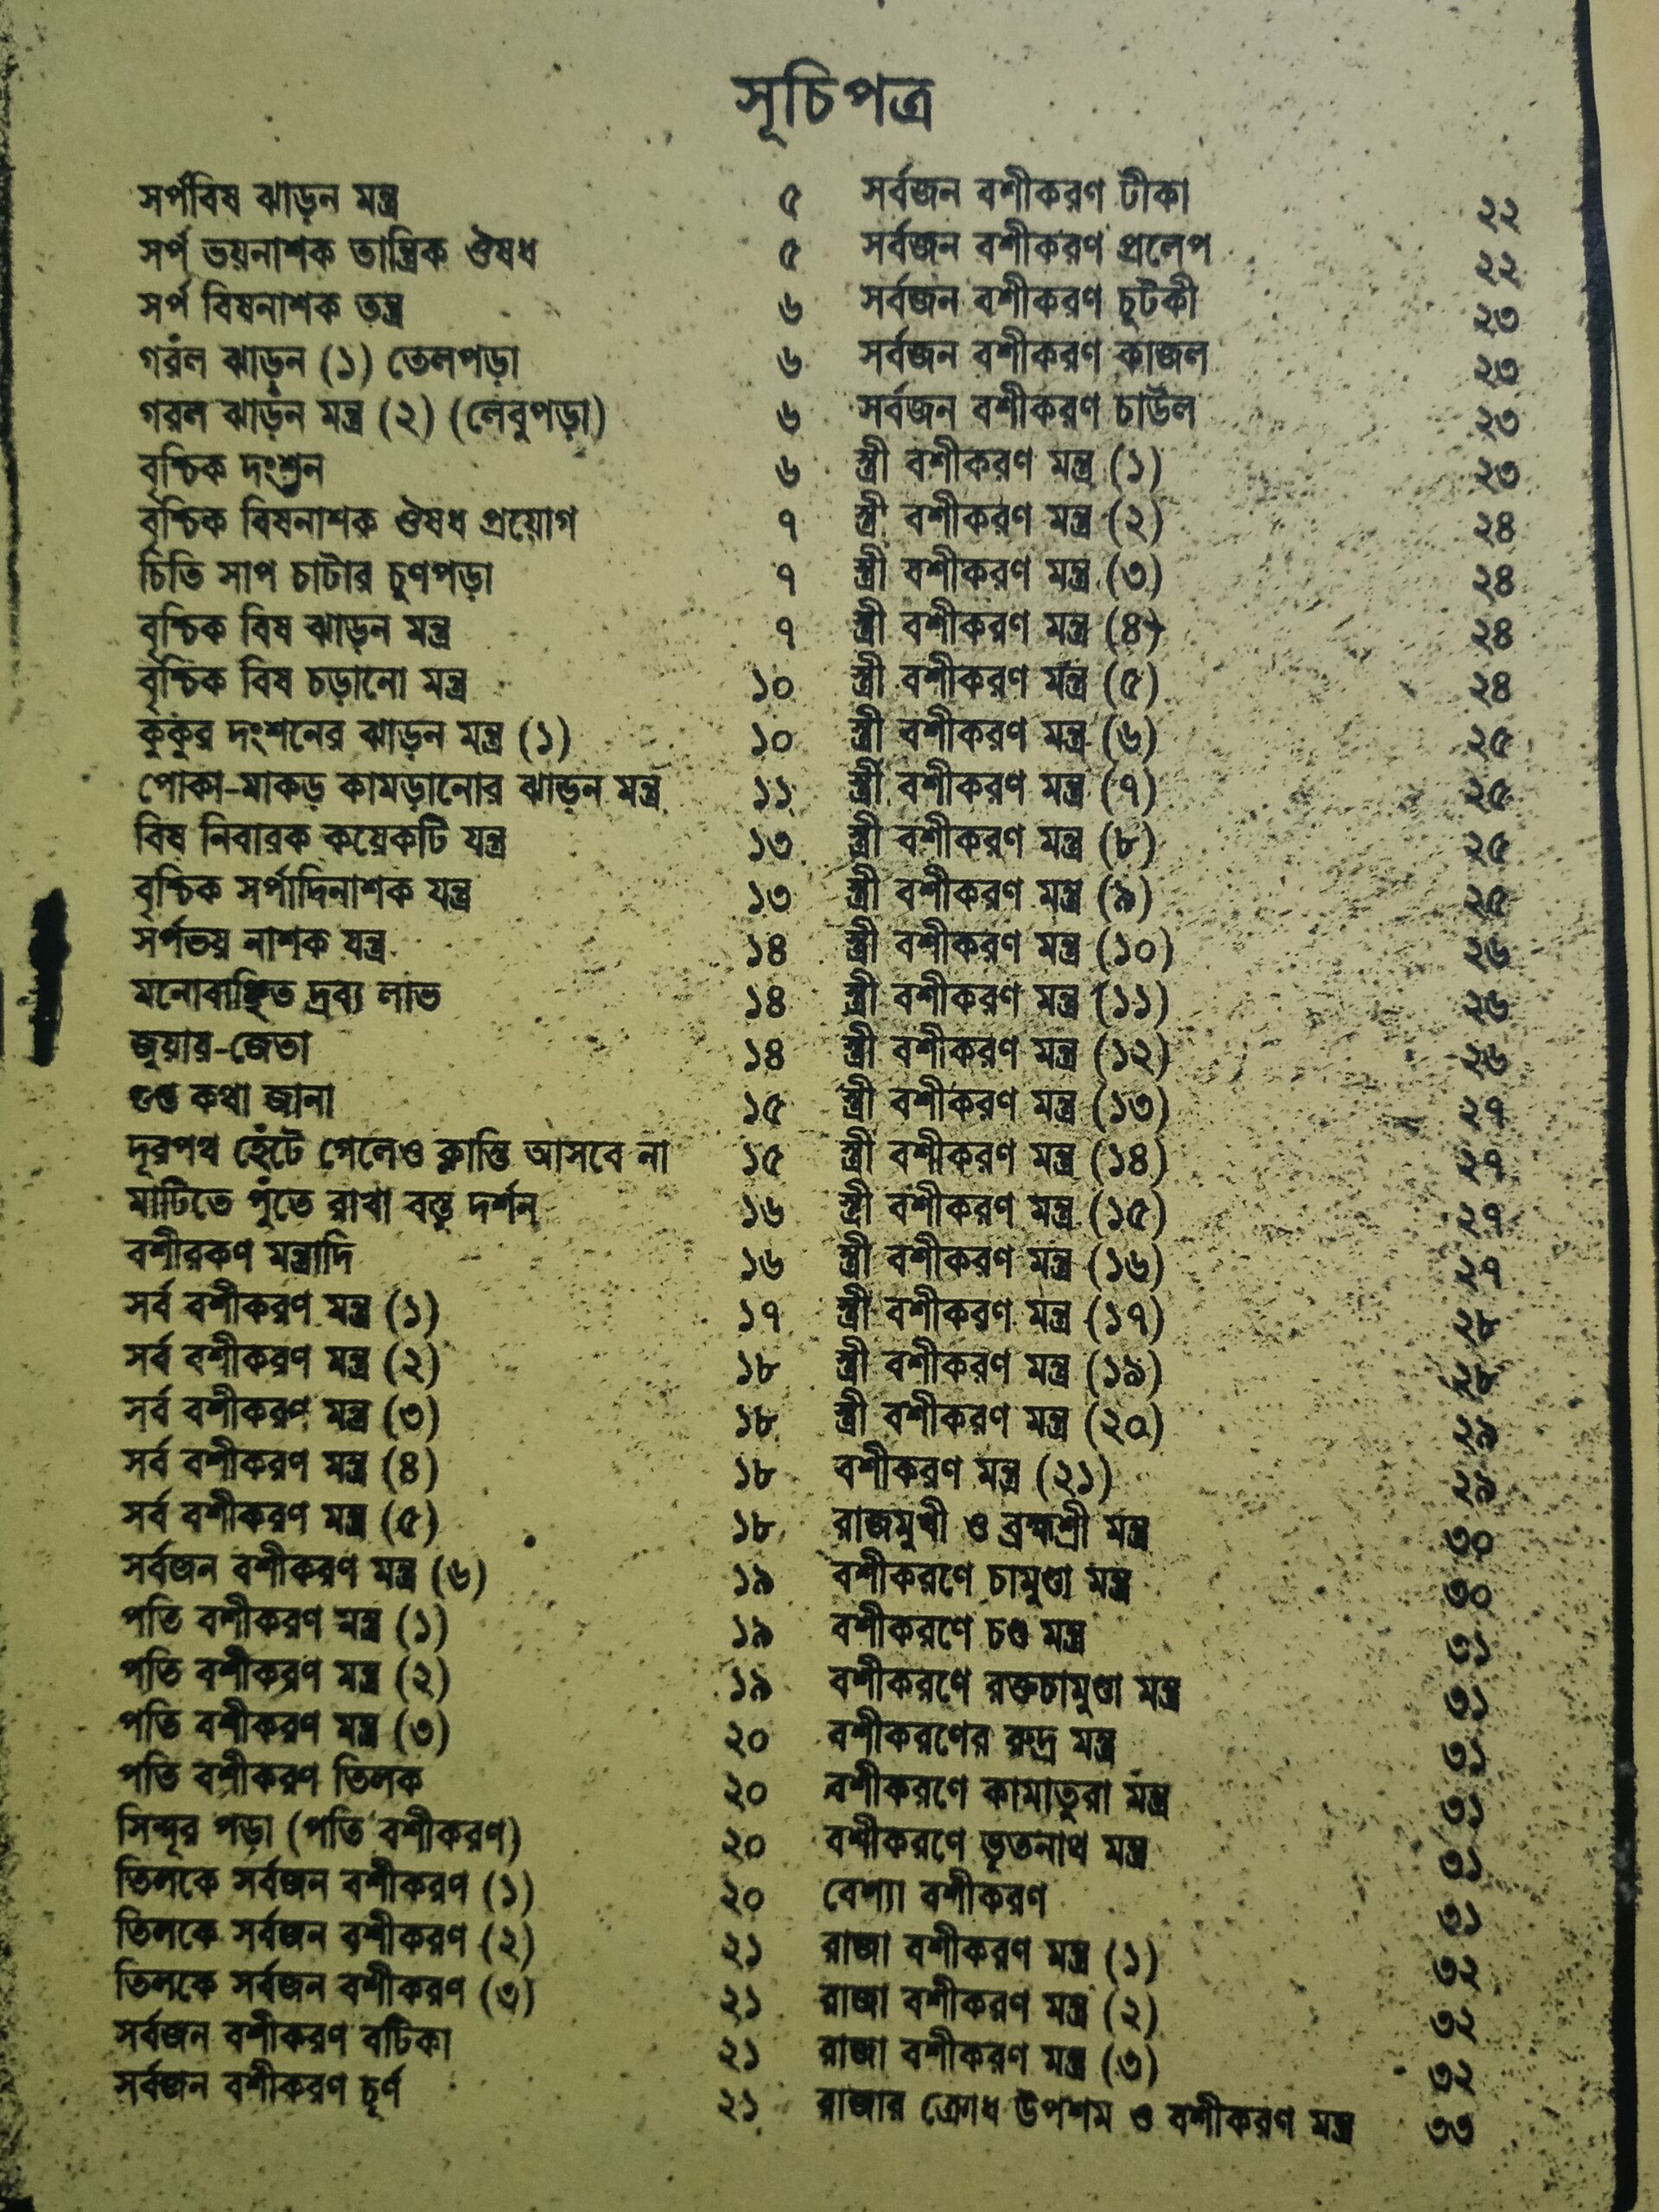 সূচিপত্র
সর্পবিষ ঝাড়ন মন্ত্র ৫
সর্প ভয়নাশক তান্ত্রিক ঔষধ ৫
সর্প বিষনাশক তন্ত্র ৬
গরল ঝাড়ন (১) তেলপড়া ৬
গরল ঝাড়ন মন্ত্র (২) (লেবুপড়া) ৬
বৃশ্চিক দংশন ৬
বৃশ্চিক বিষনাশক ঔষধ প্রয়োগ ৭
চিতি সাপ চাটার চুণপড়া ৭
বৃশ্চিক বিষ ঝাড়ন মন্ত্র ৭
বৃশ্চিক বিষ চড়ানো মন্ত্র ১০
কুকুর দংশনের ঝাড়ন মন্ত্র (১) ১০
পোকা-মাকড় কামড়ানোর ঝাড়ন মন্ত্র ১১
বিষ নিবারক কয়েকটি যন্ত্র ১৩
বৃশ্চিক সর্পাদিনাশক যন্ত্র ১৩
সর্পভয় নাশক যন্ত্র ১৪
মনোবাঞ্ছিত দ্রব্য লাভ ১৪
জুয়ায়-জেতা ১৪
গুপ্ত কথা জানা ১৫
দূরপথ হেঁটে গেলেও ক্লান্তি আসবে না ১৫
মাটিতে পুঁতে রাখা বস্তু দর্শন ১৬
বশীরকণ মন্ত্রাদি ১৬
সর্ব বশীকরণ মন্ত্র (১) ১৭
সর্ব বশীকরণ মন্ত্র (২) ১৮
সর্ব বশীকরণ মন্ত্র (৩) ১৮
সর্ব বশীকরণ মন্ত্র (৪) ১৮
সর্ব বশীকরণ মন্ত্র (৫) ১৮
সর্বজন বশীকরণ মন্ত্র (৬) ১৯
পতি বশীকরণ মন্ত্র (১) ১৯
পতি বশীকরণ মন্ত্র (২) ১৯
পতি বশীকরণ মন্ত্র (৩) ২০
পতি বশীকরণ তিলক ২০
সিন্দূর পড়া (পতি বশীকরণ) ২০
তিলকে সর্বজন বশীকরণ (১) ২০
তিলকে সর্বজন বশীকরণ (২) ২১
তিলকে সর্বজন বশীকরণ (৩) ২১
সর্বজন বশীকরণ বটিকা ২১
সর্বজন বশীকরণ চূর্ণ ২১
সর্বজন বশীকরণ টীকা ২২
সর্বজন বশীকরণ প্রলেপ ২২
সর্বজন বশীকরণ চুটকী ২৩
সর্বজন বশীকরণ কাজল ২৩
সর্বজন বশীকরণ চাউল ২৩
স্ত্রী বশীকরণ মন্ত্র (১) ২৩
স্ত্রী বশীকরণ মন্ত্র (২) ২৪
স্ত্রী বশীকরণ মন্ত্র (৩) ২৪
স্ত্রী বশীকরণ মন্ত্র (৪) ২৪
স্ত্রী বশীকরণ মন্ত্র (৫) ২৪
স্ত্রী বশীকরণ মন্ত্র (৬) ২৫
স্ত্রী বশীকরণ মন্ত্র (৭) ২৫
স্ত্রী বশীকরণ মন্ত্র (৮) ২৫
স্ত্রী বশীকরণ মন্ত্র (৯) ২৫
স্ত্রী বশীকরণ মন্ত্র (১০) ২৬
স্ত্রী বশীকরণ মন্ত্র (১১) ২৬
স্ত্রী বশীকরণ মন্ত্র (১২) ২৬
স্ত্রী বশীকরণ মন্ত্র (১৩) ২৭
স্ত্রী বশীকরণ মন্ত্র (১৪) ২৭
স্ত্রী বশীকরণ মন্ত্র (১৫) ২৭
স্ত্রী বশীকরণ মন্ত্র (১৬) ২৭
স্ত্রী বশীকরণ মন্ত্র (১৭) ২৮
স্ত্রী বশীকরণ মন্ত্র (১৯) ২৮
স্ত্রী বশীকরণ মন্ত্র (২০) ২৯
বশীকরণ মন্ত্র (২১) ২৯
রাজমুখী ও ব্রহ্মশ্রী মন্ত্র ৩০
বশীকরণে চামুণ্ডা মন্ত্র ৩০
বশীকরণে চণ্ড মন্ত্র ৩১
বশীকরণে রক্তচামুণ্ডা মন্ত্র ৩১
বশীকরণের রুদ্র মন্ত্র ৩১
বশীকরণে কামাতুরা মন্ত্র ৩১
বশীকরণে ভূতনাথ মন্ত্র ৩১
বেশ্যা বশীকরণ ৩১
রাজা বশীকরণ মন্ত্র (১) ৩২
রাজা বশীকরণ মন্ত্র (২) ৩২
রাজা বশীকরণ মন্ত্র (৩) ৩২
রাজার ক্রোধ উপশম ও বশীকরণ মন্ত্র ৩৩